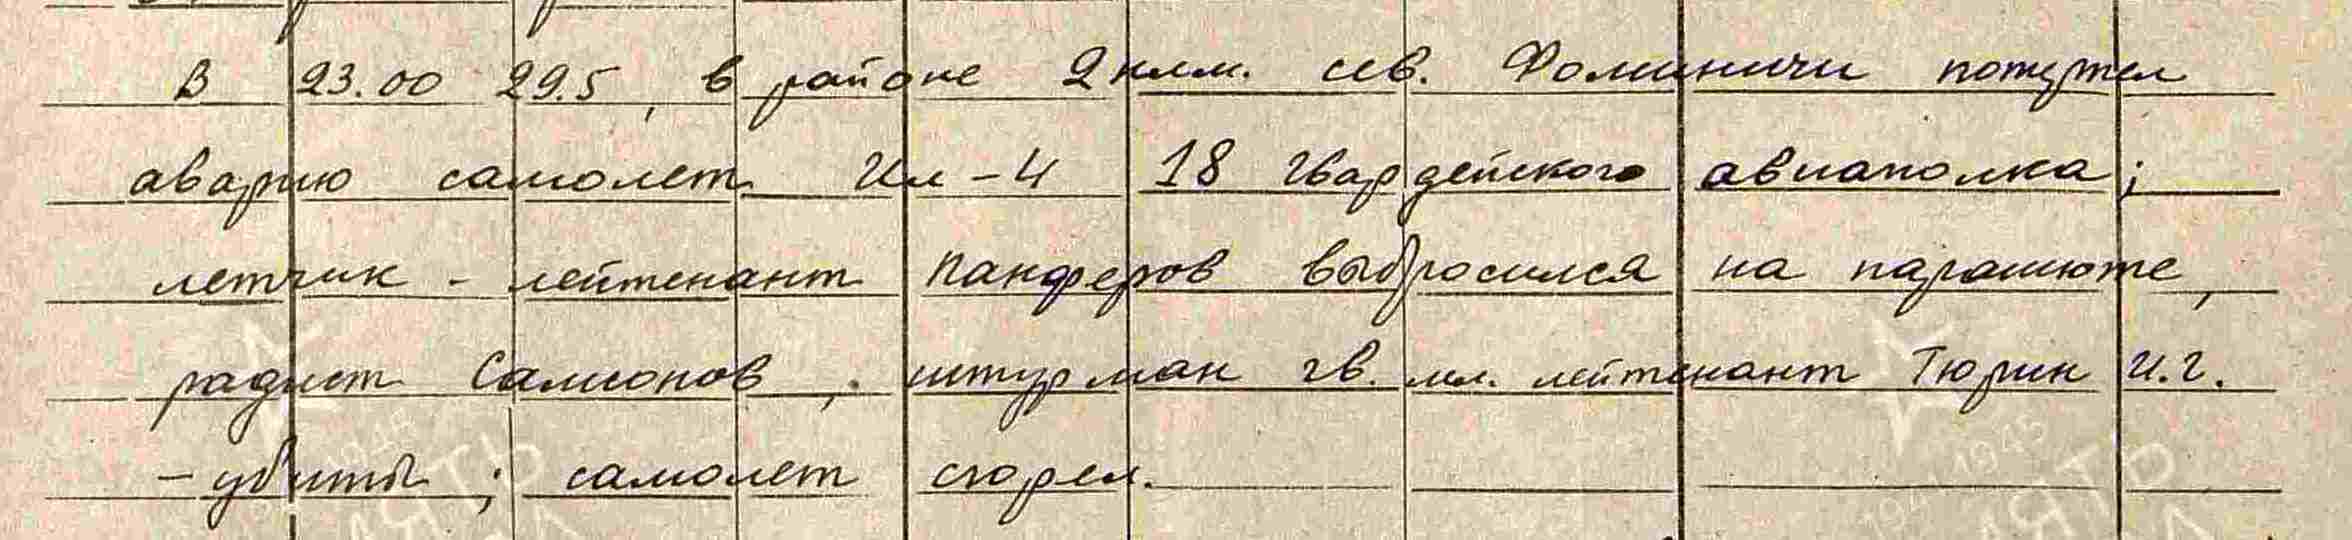 В 23.00 29.5, в районе 2 клм. сев. Фоминичи потерпел
аварию самолет Ил-4 18 гвардейского авиаполка;
летчик - лейтенант Панферов выбросился на парашюте,
радист Самсонов, штурман гв. мл. лейтенант Тюрин И.Г.
- убиты; самолет сгорел.